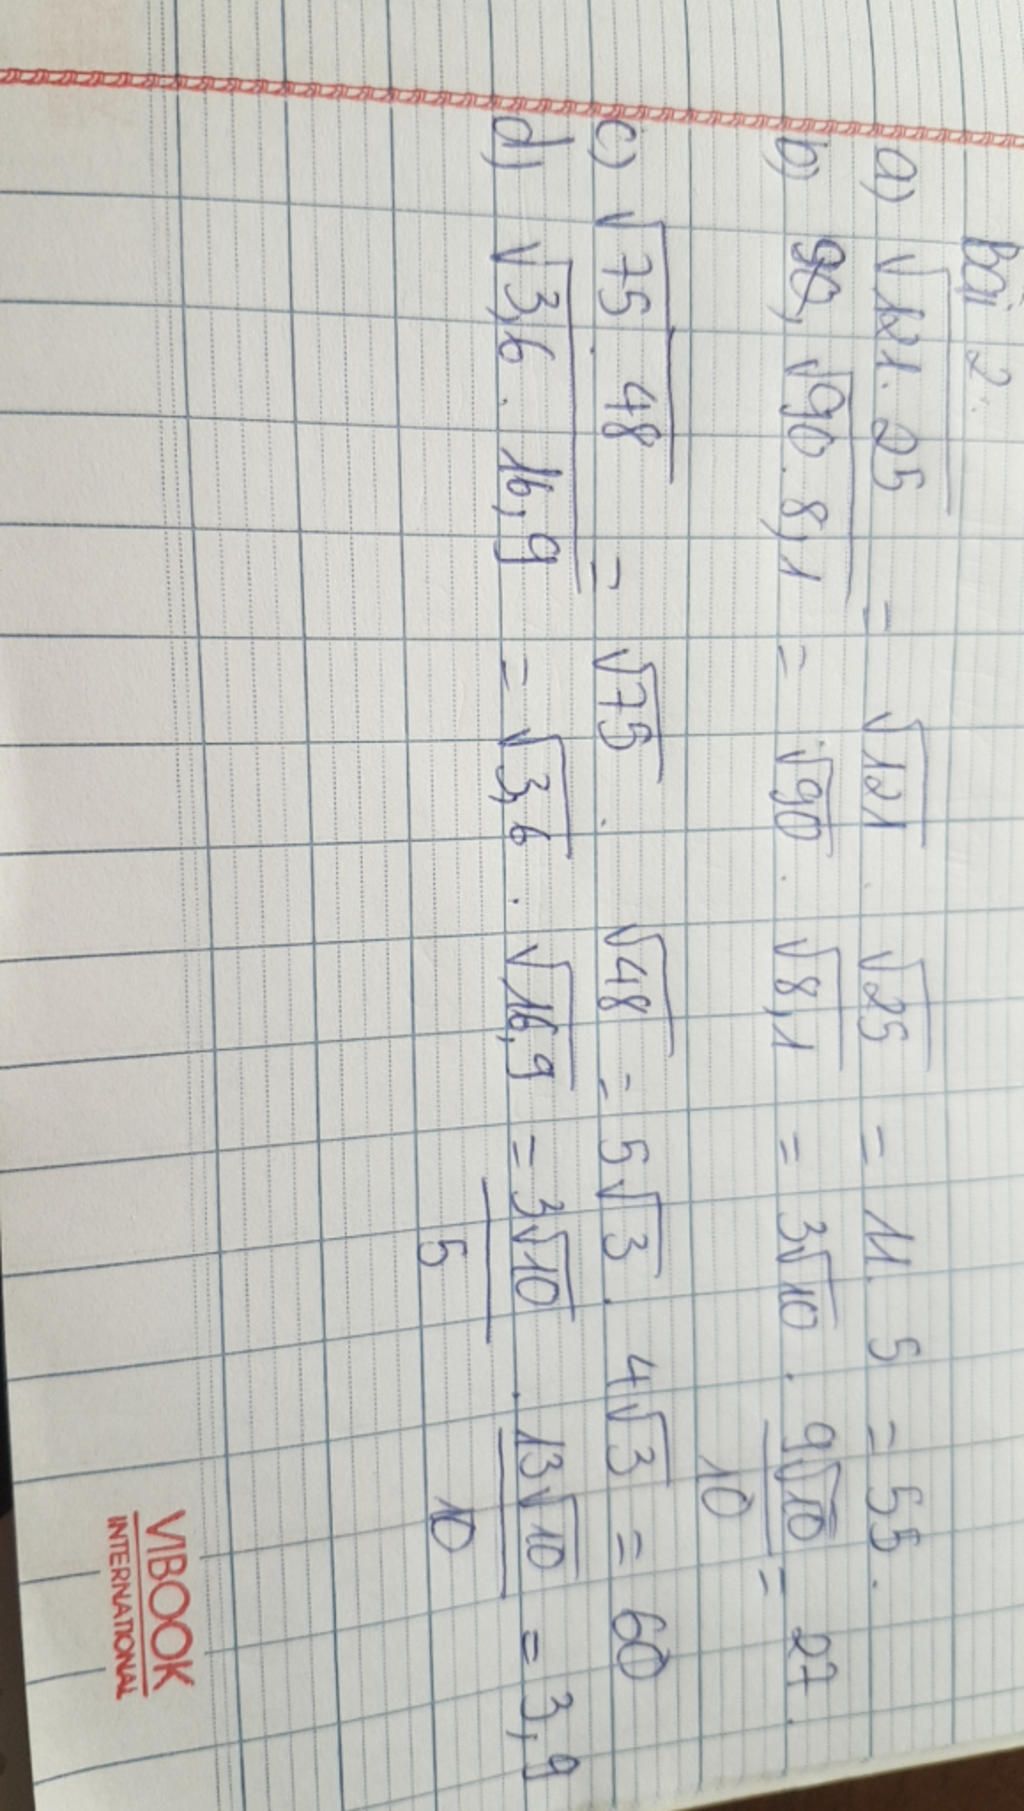 Bài 2.
a) √121.25 = √121 . √25 = 11. 5 = 55.
b) 90, √90.8,1 = √90 . √8,1 = 3√10 . 9√10/10 = 27.
c) √75 . 48 = √75 . √48 = 5√3 . 4√3 = 60
d) √3,6 . 16,9 = √3,6 . √16,9 = 3√10/5 . 13√10/10 = 3,9
VIBOOK
INTERNATIONAL